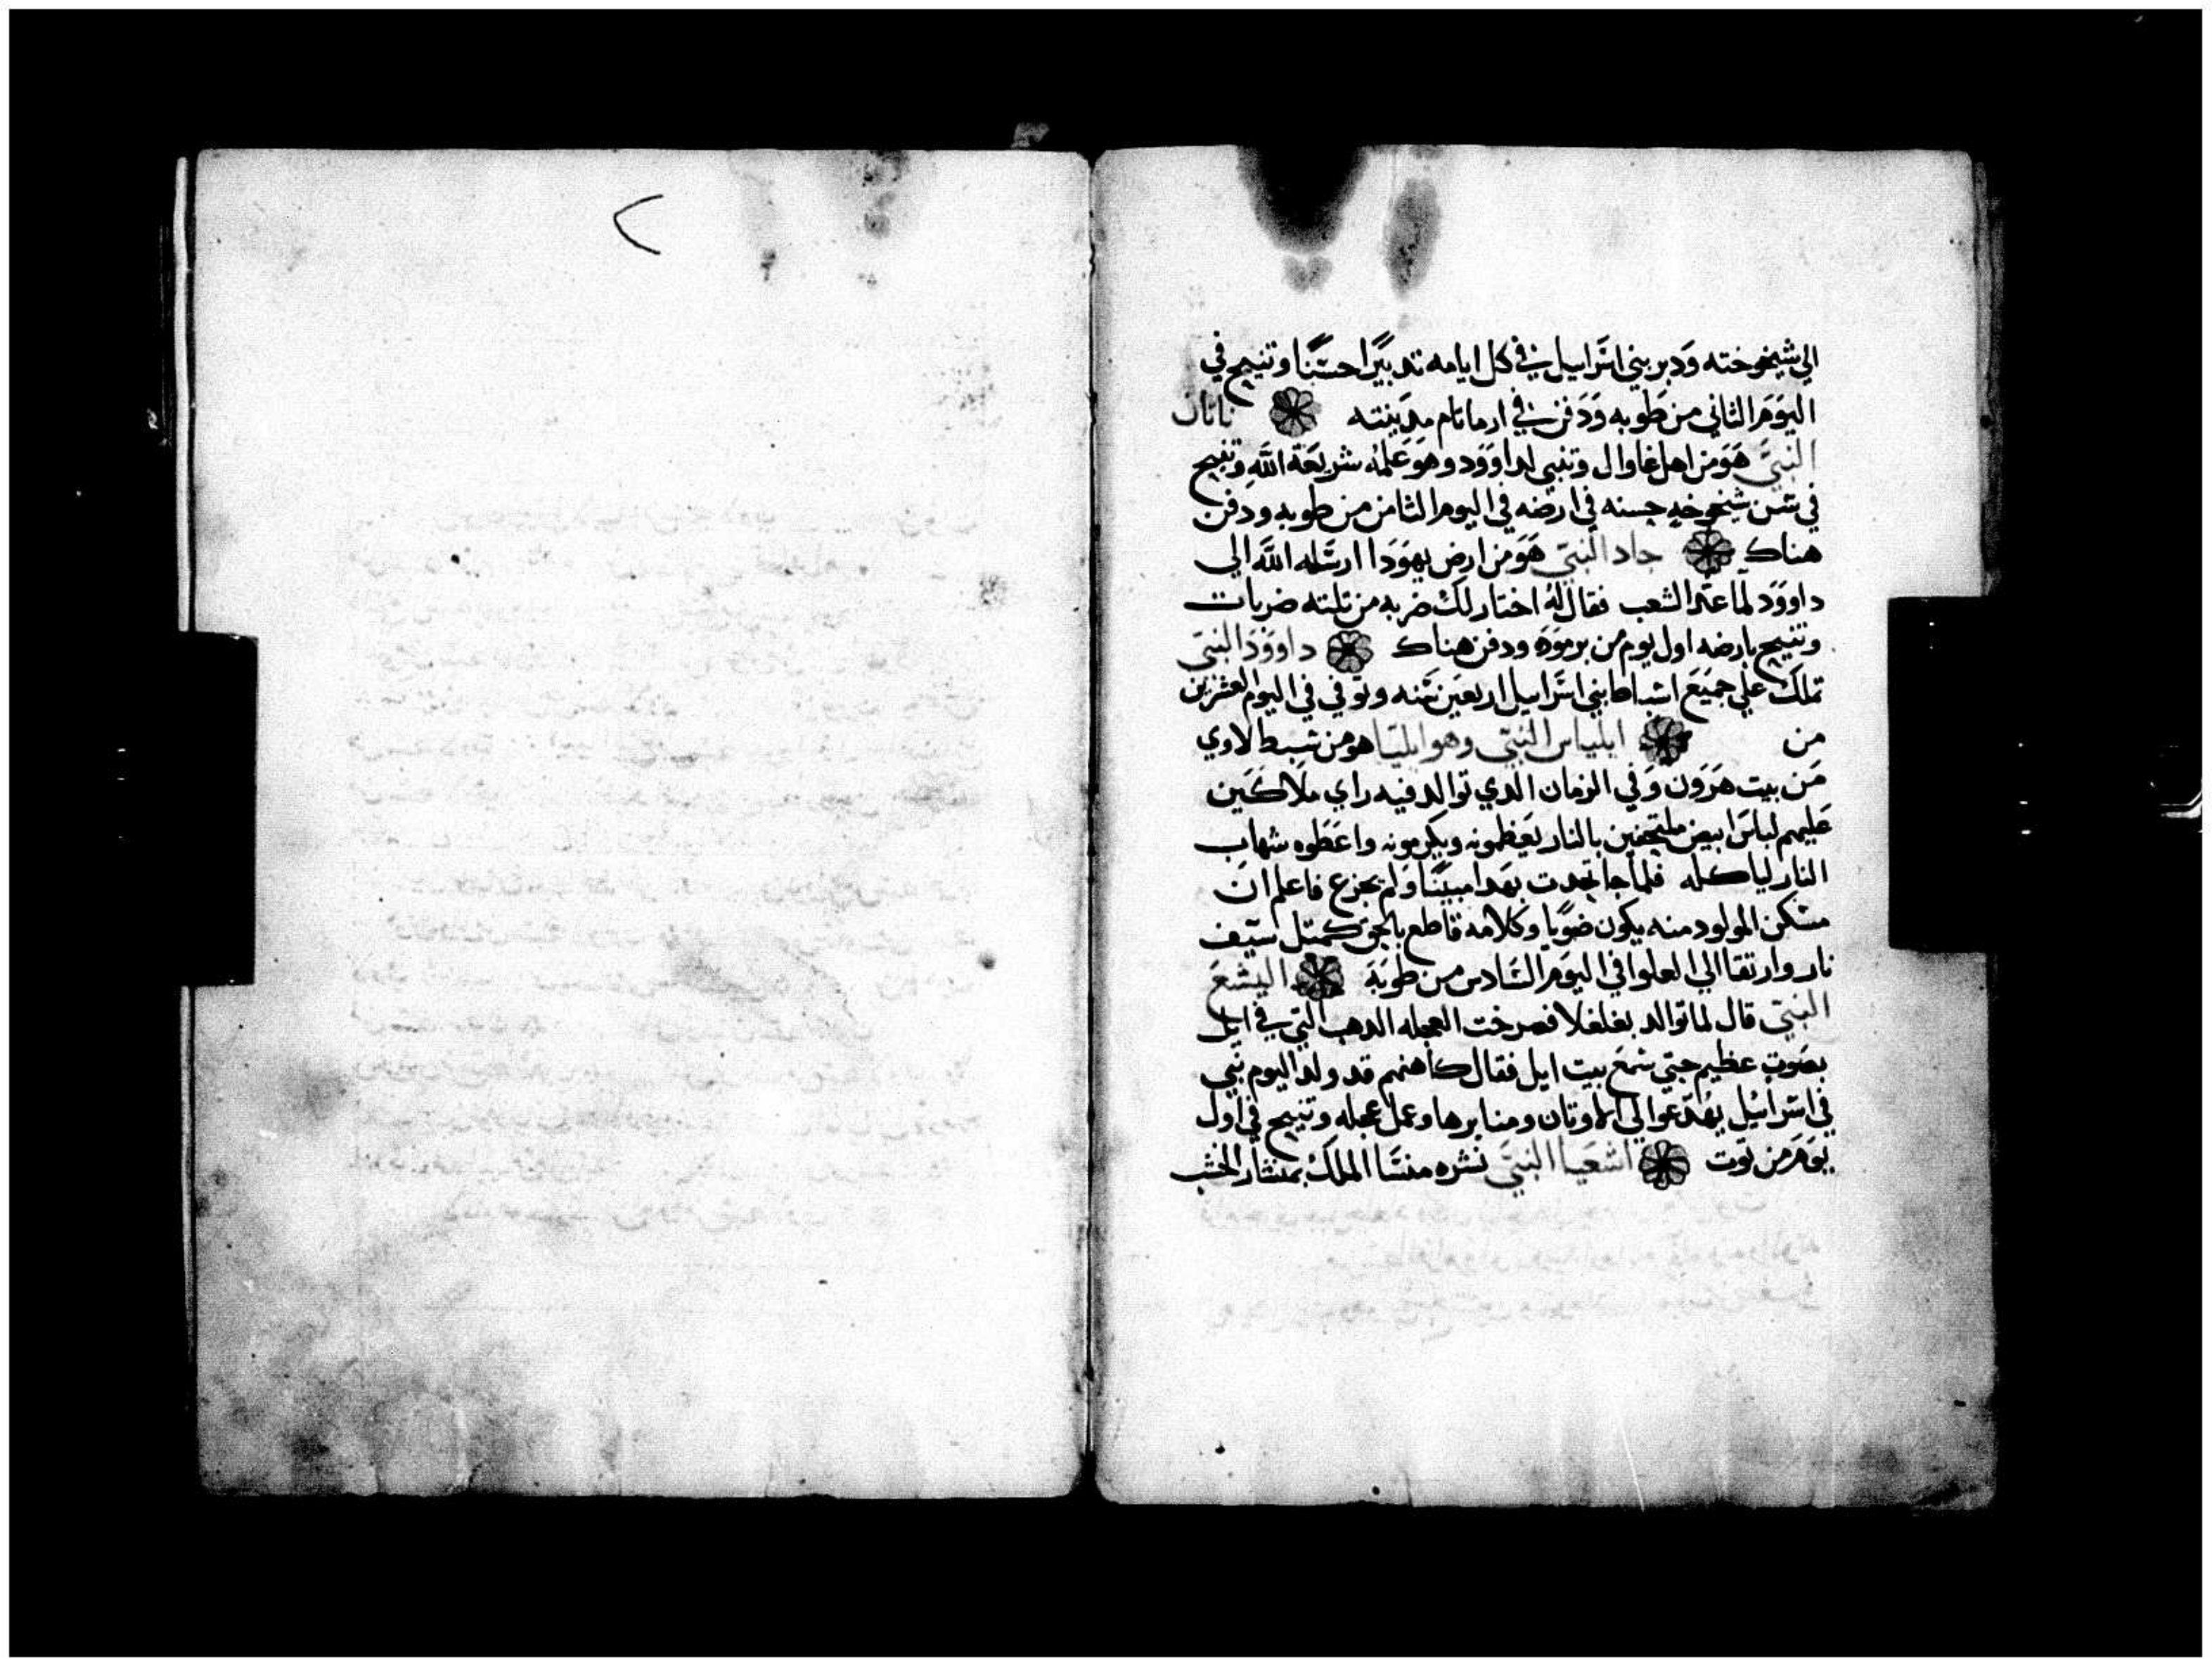 الي شيخوخته ودبر بني اسراييل في كل ايامه تدبيرا حسنا وتنيح في
اليوم الثاني من طوبه ودفن في ارماتام مدينته ناتان
النبي هو من اهل غاوال وتنبي لداوود وهو علمه شريعة الله وتنيح
في سن شيخوخه حسنه في ارضه في اليوم الثامن من طوبه ودفن
هناك جاد النبي هو من ارض يهودا ارسله الله الي
داوود لما عد الشعب فقال له اختار لك ضربه من تلته ضربات
وتنيح بارضه اول يوم من برموده ودفن هناك داوود النبي
تملك علي جميع اسباط بني اسراييل اربعين سنه وتوفي في اليوم العشرين
من ايلياس النبي وهو ايليا هو من سبط لاوي
من بيت هرون وفي الزمان الدي توالد فيه راي ملاكين
عليهم لباس ابيض ملتحفين بالنار يعظمونه ويكرمونه واعطوه شهاب
النار لياكله فلما جا تحدت بهدا مبينا ولم يجزع فاعلم ان
مسكن المولود منه يكون ضويا وكلامه قاطع بالحق كمتل سيف
نار وارتقا الي العلوا في اليوم السادس من طوبه اليشع
النبي قال لما توالد بغلغلا فصرخت العجله الدهب التي في ايل
بصوت عظيم حتي سمع بيت ايل فقال كاهنهم قد ولد اليوم نبي
في اسراييل يهد عوالي الاوتان ومنابرها وعمل عجله وتنيح في اول
يوم من توت اشعيا النبي نشره منسا الملك بمنشار الخشب